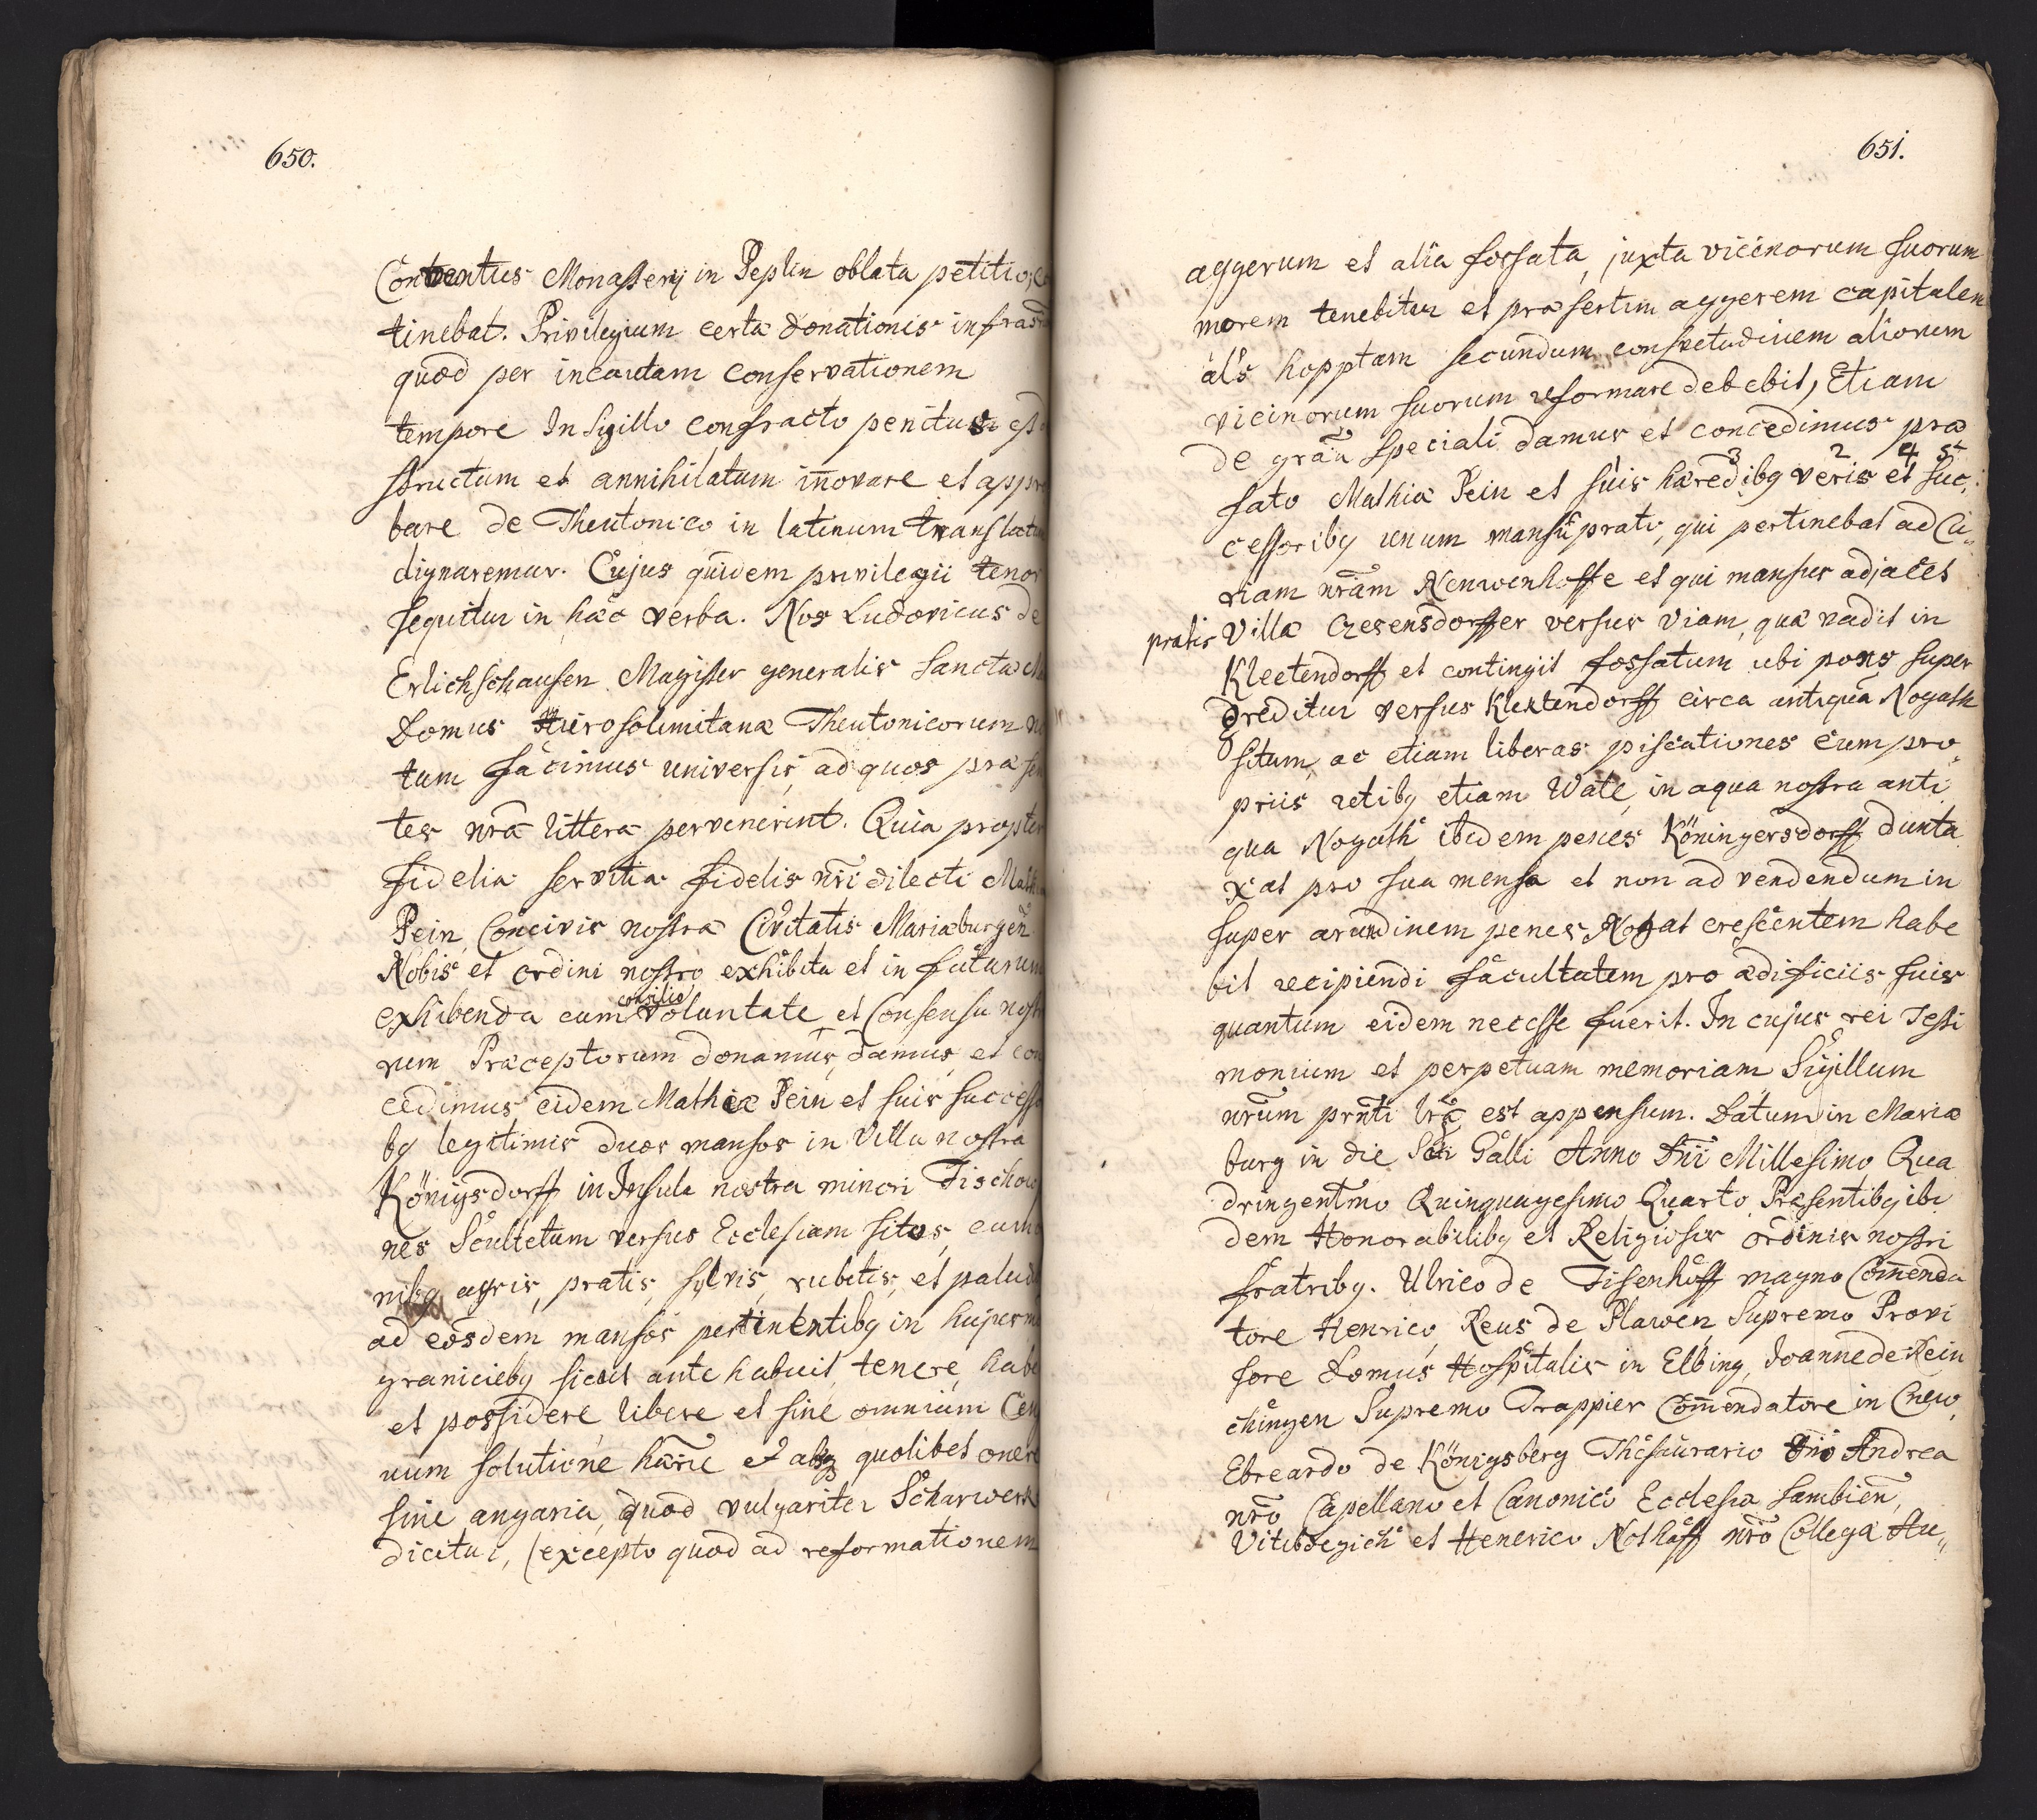 650.
Conventus Monasterij in Peplin oblata petitio,
tinebat. Privilegium certæ donationis
quod per incautam conservationem
tempore In Sigillo confracto penitus
structum et annihilatum iñovare et
bare de Theutonico in latinum
dignaremur. Cujus quidem privilegii tenor
sequitur in hæc verba. Nos Ludovicus de
Erlichschausen Magister generalis Sanctæ
Domus Hierosolimitanæ Theutonicorum
tum facimus universis, ad quos
tes nrã litteræ pervenerint. Quia propter
fidelia servitia fidelis nrĩ dilecti
Pein, Concivis nostræ Civitatis Mariæburgeñ
Nobis et ordini nostro exhibita et in futurum
consilio
exhibenda cum voluntate et Consensu
rum Præceptorum donamus, damus, et
cedimus eidem Mathiæ Pein et suis
bq legitimis duos mansos in Villa nostra
Königsdorff in Insula nostra minori
nes Scultetum versus Ecclesiam sitos,
nibq agris, pratis, sylvis, rubetis, et
ad eosdem mansos pertinentibq in
graniciebq sicut ante habuit, tenere,
et possidere, libere et sine omnium
uum solutione et absq quolibet onere
sine angaria, quod vulgariter Scharwerk
dicitur, (excepto quod ad reformationem
651.
aggerum et alia fossata, juxta vicinorum suorum
morem tenebitur et præsertim aggerem capitalem
als hopptam secundum consvetudinem aliorum
vicinorum suorum reformare debebit, Etiam
de grãa speciali damus et concedimus præ
3 2 4 5
fato Mathiæ Pein et suis hæredibq veris et suc,
cessoribq unum mansũ prati, qui pertinebat ad Cu„
riam nrãm Neuwenhoffe et qui mansus adjacet
pratis Villæ Czesensdorffer versus viam, quæ vadit in
Kleetendorff et contingit fossatum ubi pons super
greditur versus Klektendorff circa antiquã Nogath
situm, ac etiam liberas piscationes cum pro
priis retibq etiam Wate, in aqua nostra anti
qua Nogath ibidem penes Köningersdorff dunta
xat pro sua mensa et non ad vendendum in
super arundinem penes Nogat crescentem habe
bit recipiendi facultatem pro ædificiis suis
quantum eidem necesse fuerit. In cujus rei Testi
monium et perpetuam memoriam Sigillum
nrũm prñti lrã est appensum. Datum in Mariæ
burg in die Scti Galli Anno Dñi Millesimo Qua
dringentmo Quinquagesimo Quarto, Præsentibq ibi
dem Honorabilibq et Religiosis ordinis nostri
fratribq. Ulrico de Eisenhoff magno Com̃enda
tore Henrico, Reus de Plawen Supremo Provi
sore Domus Hospitalis in Elbing, Joanne de Rein
chingen Supremo Trappier Com̃endatore in Cnew,
Ebreardo de Königsberg Thesaurario Dño Andrea
nrõ Capellano et Canonico Ecclesiæ Sambieñ,
et Henerico Nothaff nrõ Collega Au„